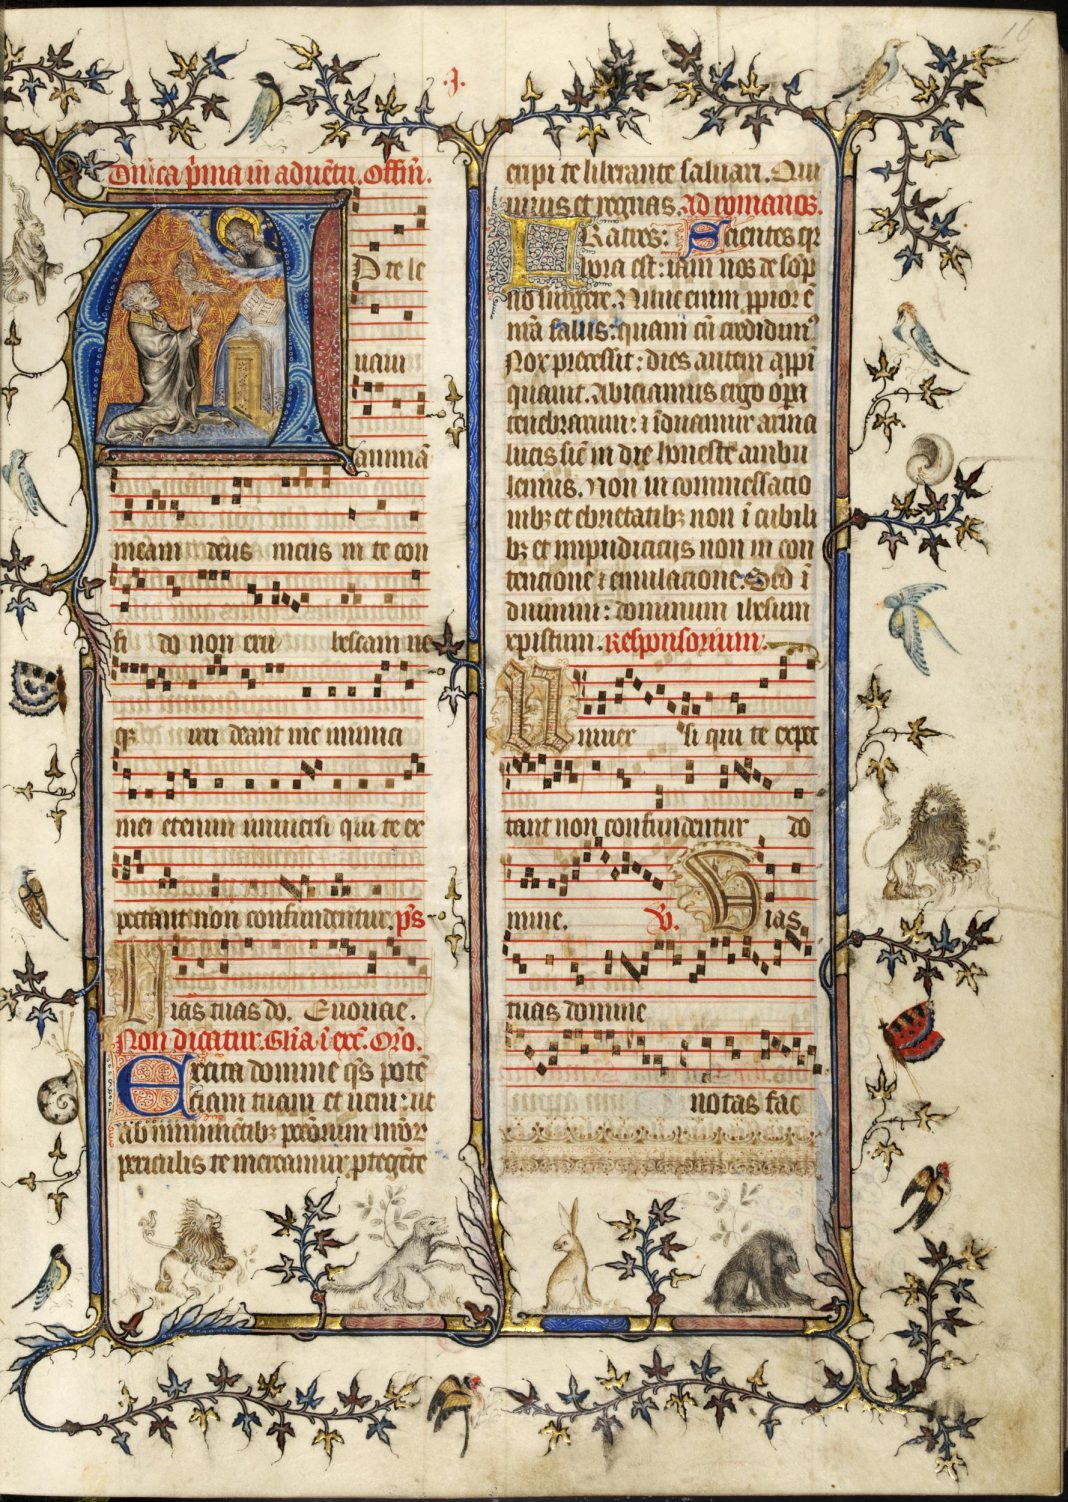 16
J.
Dnica p̄ma in aduētu. Offm̄.
D te le
uaui
animā
meam deus meus in te con
fi do non eru bescam ne
q3 irri deant me inimici
mei etenim uniuersi qui te ex
pectant non confundentur. ps̄
Vias tuas do. Euouae.
Non dicatur. Glīa. ī exc̄. Orō.
Excita domine q̄s potē
ciam tuam et ueni: ut
ab iminētib3 pccōrum nr̄or
periculis te mereamur ptegēte
eripi te liberante saluari. Qui
uiuis et regnas. Ad romanos.
FRatres: Scientes qr
hora est: iam nos de sōp
no surgere. Nunc enim ppior ē
nr̄a salus: quam cū credidim9
Nox precessit: dies autem appī
quauit. Abiciamus ergo opa
tenebrarum: ⁊ īduamur arma
lucis sic̄ in die honeste ambu
lemus. Non in comessatio
nib3 et ebrietatib3 non ī cubili
b3 et impudiciciis non in con
tentione ⁊ emulacione. Sed ī
duimini: dominum ihesum
xpistum. Responsorium.
Uniuer si qui te expec
tant non confundentur do
mine. V. Uias
tuas domine
notas fac